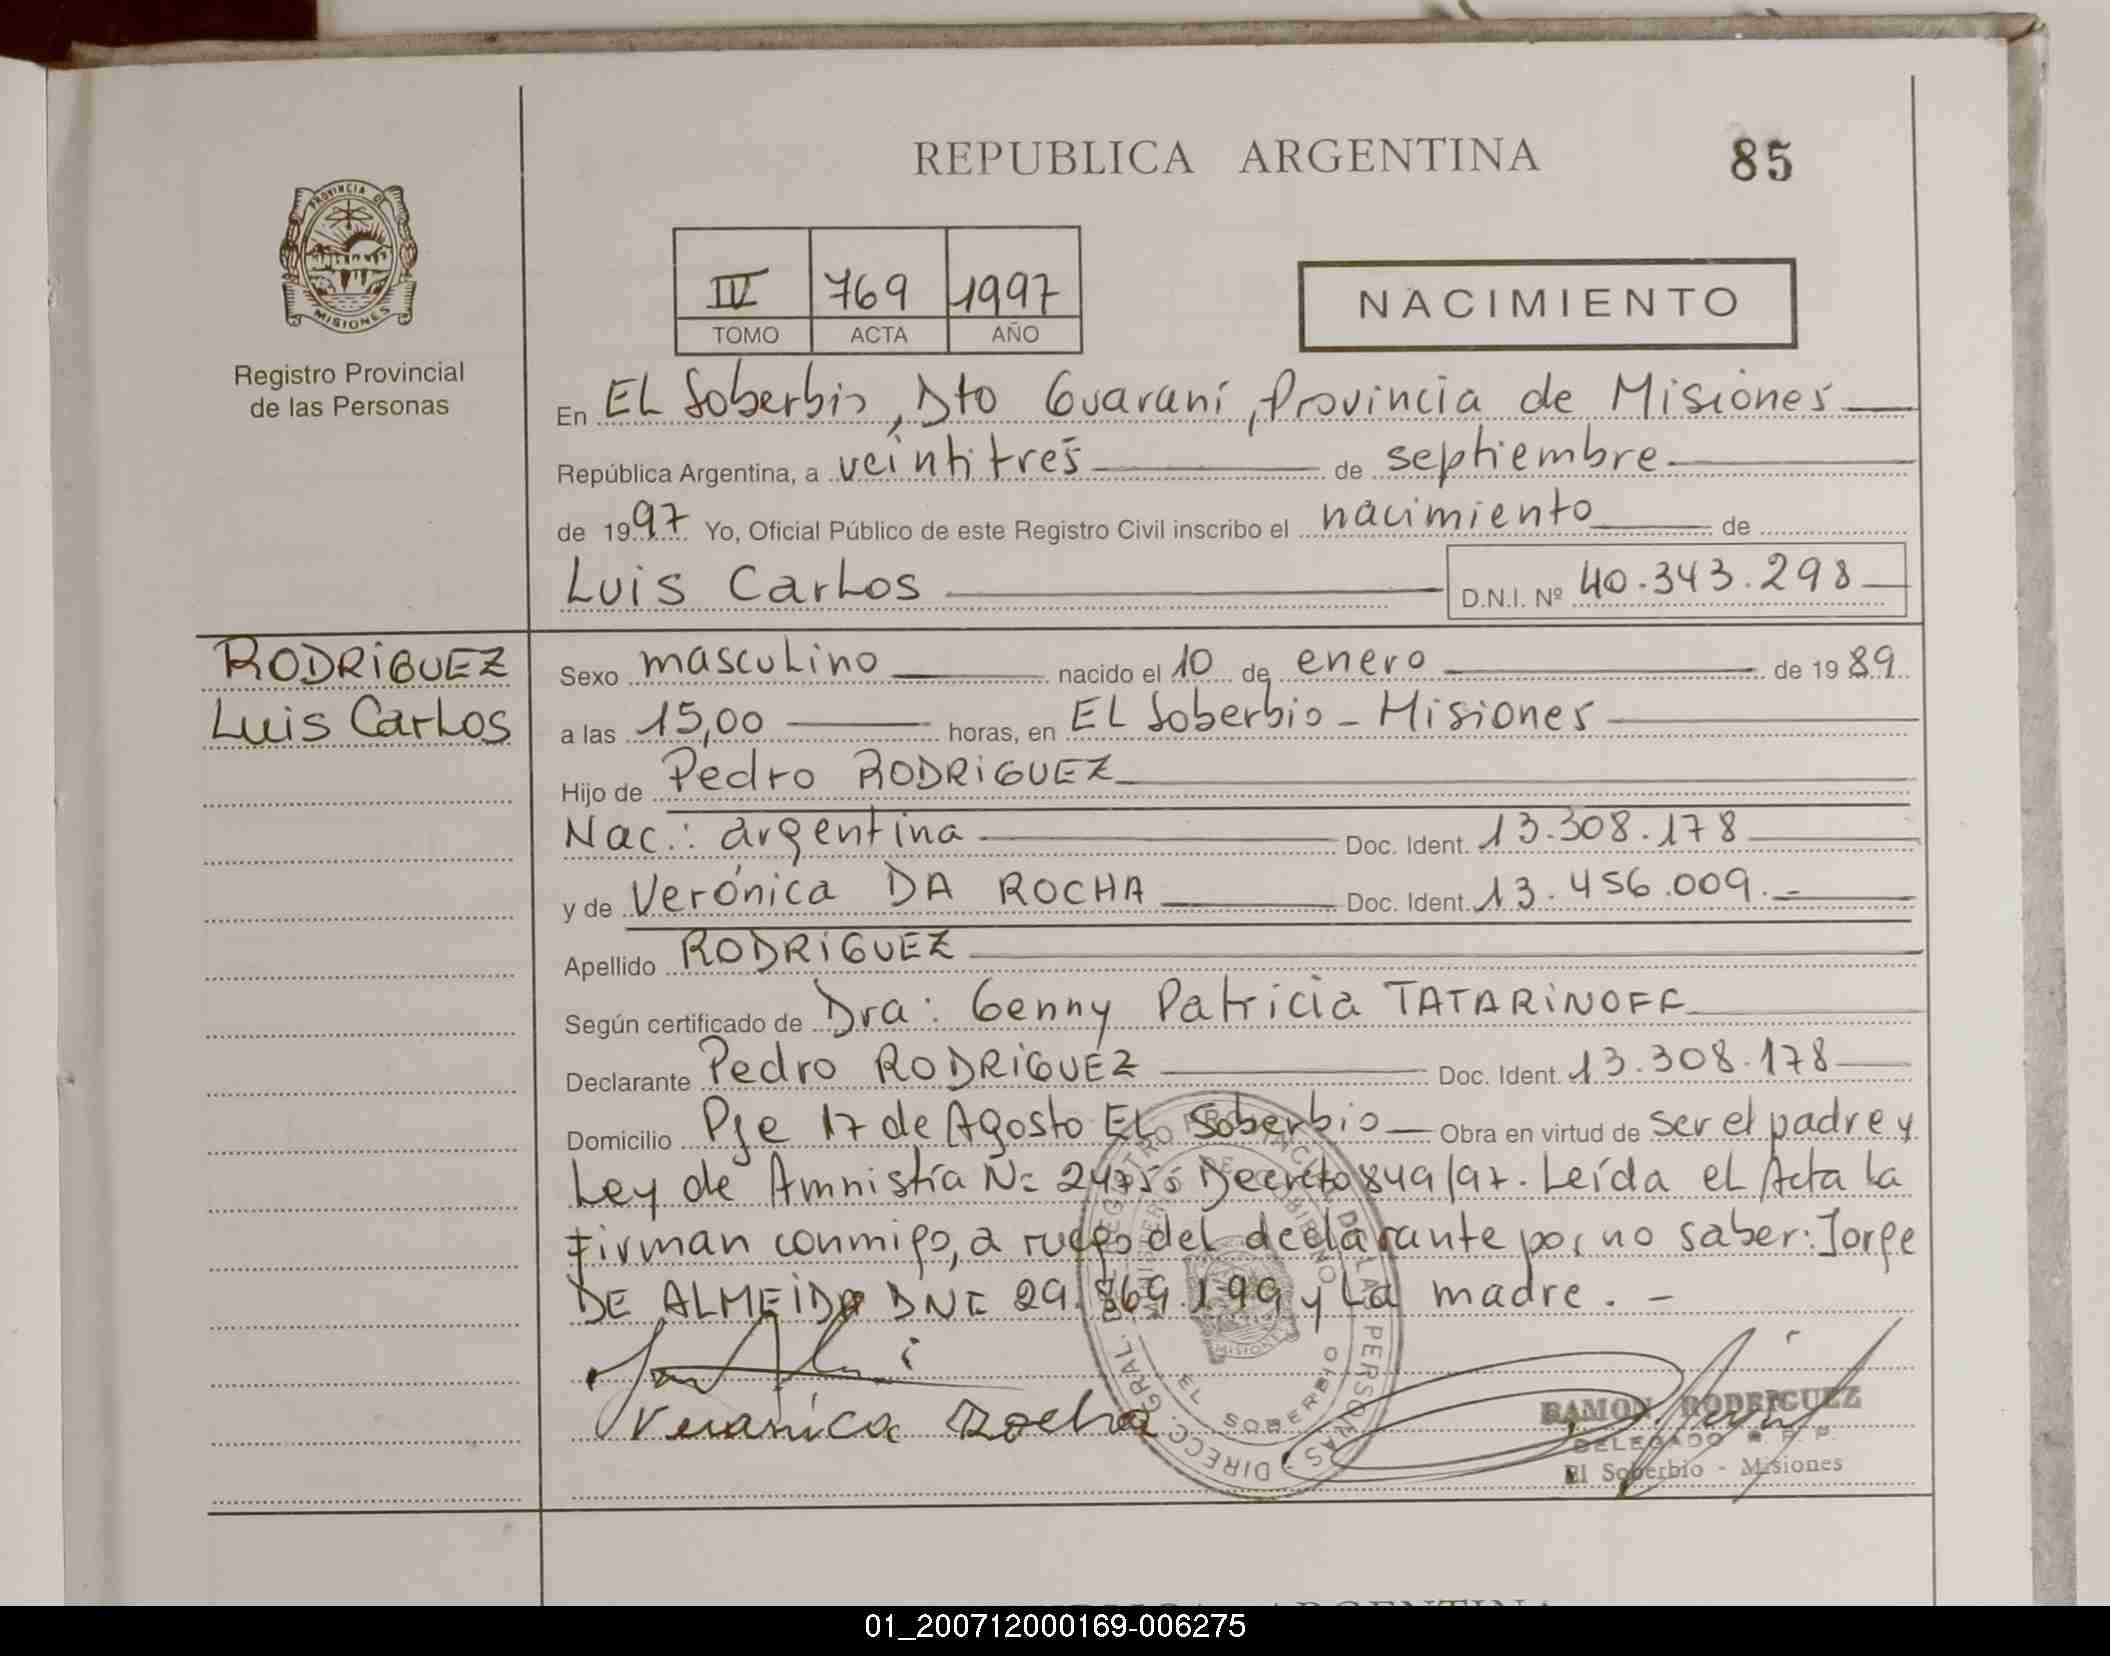 REPUBLICA ARGENTINA
85
PROVINCIA DE
MISIONES
Registro Provincial
de las Personas
IV 769 1997
TOMO ACTA AÑO
NACIMIENTO
En EL Soberbio, Dto Guaraní, Provincia de Misiones
República Argentina, a veintitres de septiembre
de 1997 Yo, Oficial Público de este Registro Civil inscribo el nacimiento de
Luis Carlos D.N.I. Nº 40.343.298
RODRIGUEZ
Luis Carlos
Sexo masculino nacido el 10 de enero de 1989
a las 15,00 horas, en EL Soberbio - Misiones
Hijo de Pedro RODRIGUEZ
Nac.: argentina Doc. Ident. 13.308.178
y de Verónica DA ROCHA Doc. Ident. 13.456.009.-
Apellido RODRIGUEZ
Según certificado de Dra: Genny Patricia TATARINOFF
Declarante Pedro RODRIGUEZ Doc. Ident. 13.308.178
Domicilio Pje 17 de Agosto EL Soberbio Obra en virtud de ser el padre y
Ley de Amnistía Nº 24755 Decreto 849/97. Leída el Acta la
firman conmigo, a ruego del declarante por no saber: Jorge
DE ALMEIDA DNI 29. 199 y La madre. -
Veranica Rocha
RAMON RODRIGUEZ
DELEGADO R. P. P.
El Soberbio - Misiones
DIRECC. GRAL. DEL REGISTRO PROVINCIAL DE LAS PERSONAS
EL SOBERBIO
MISIONES
01_200712000169-006275